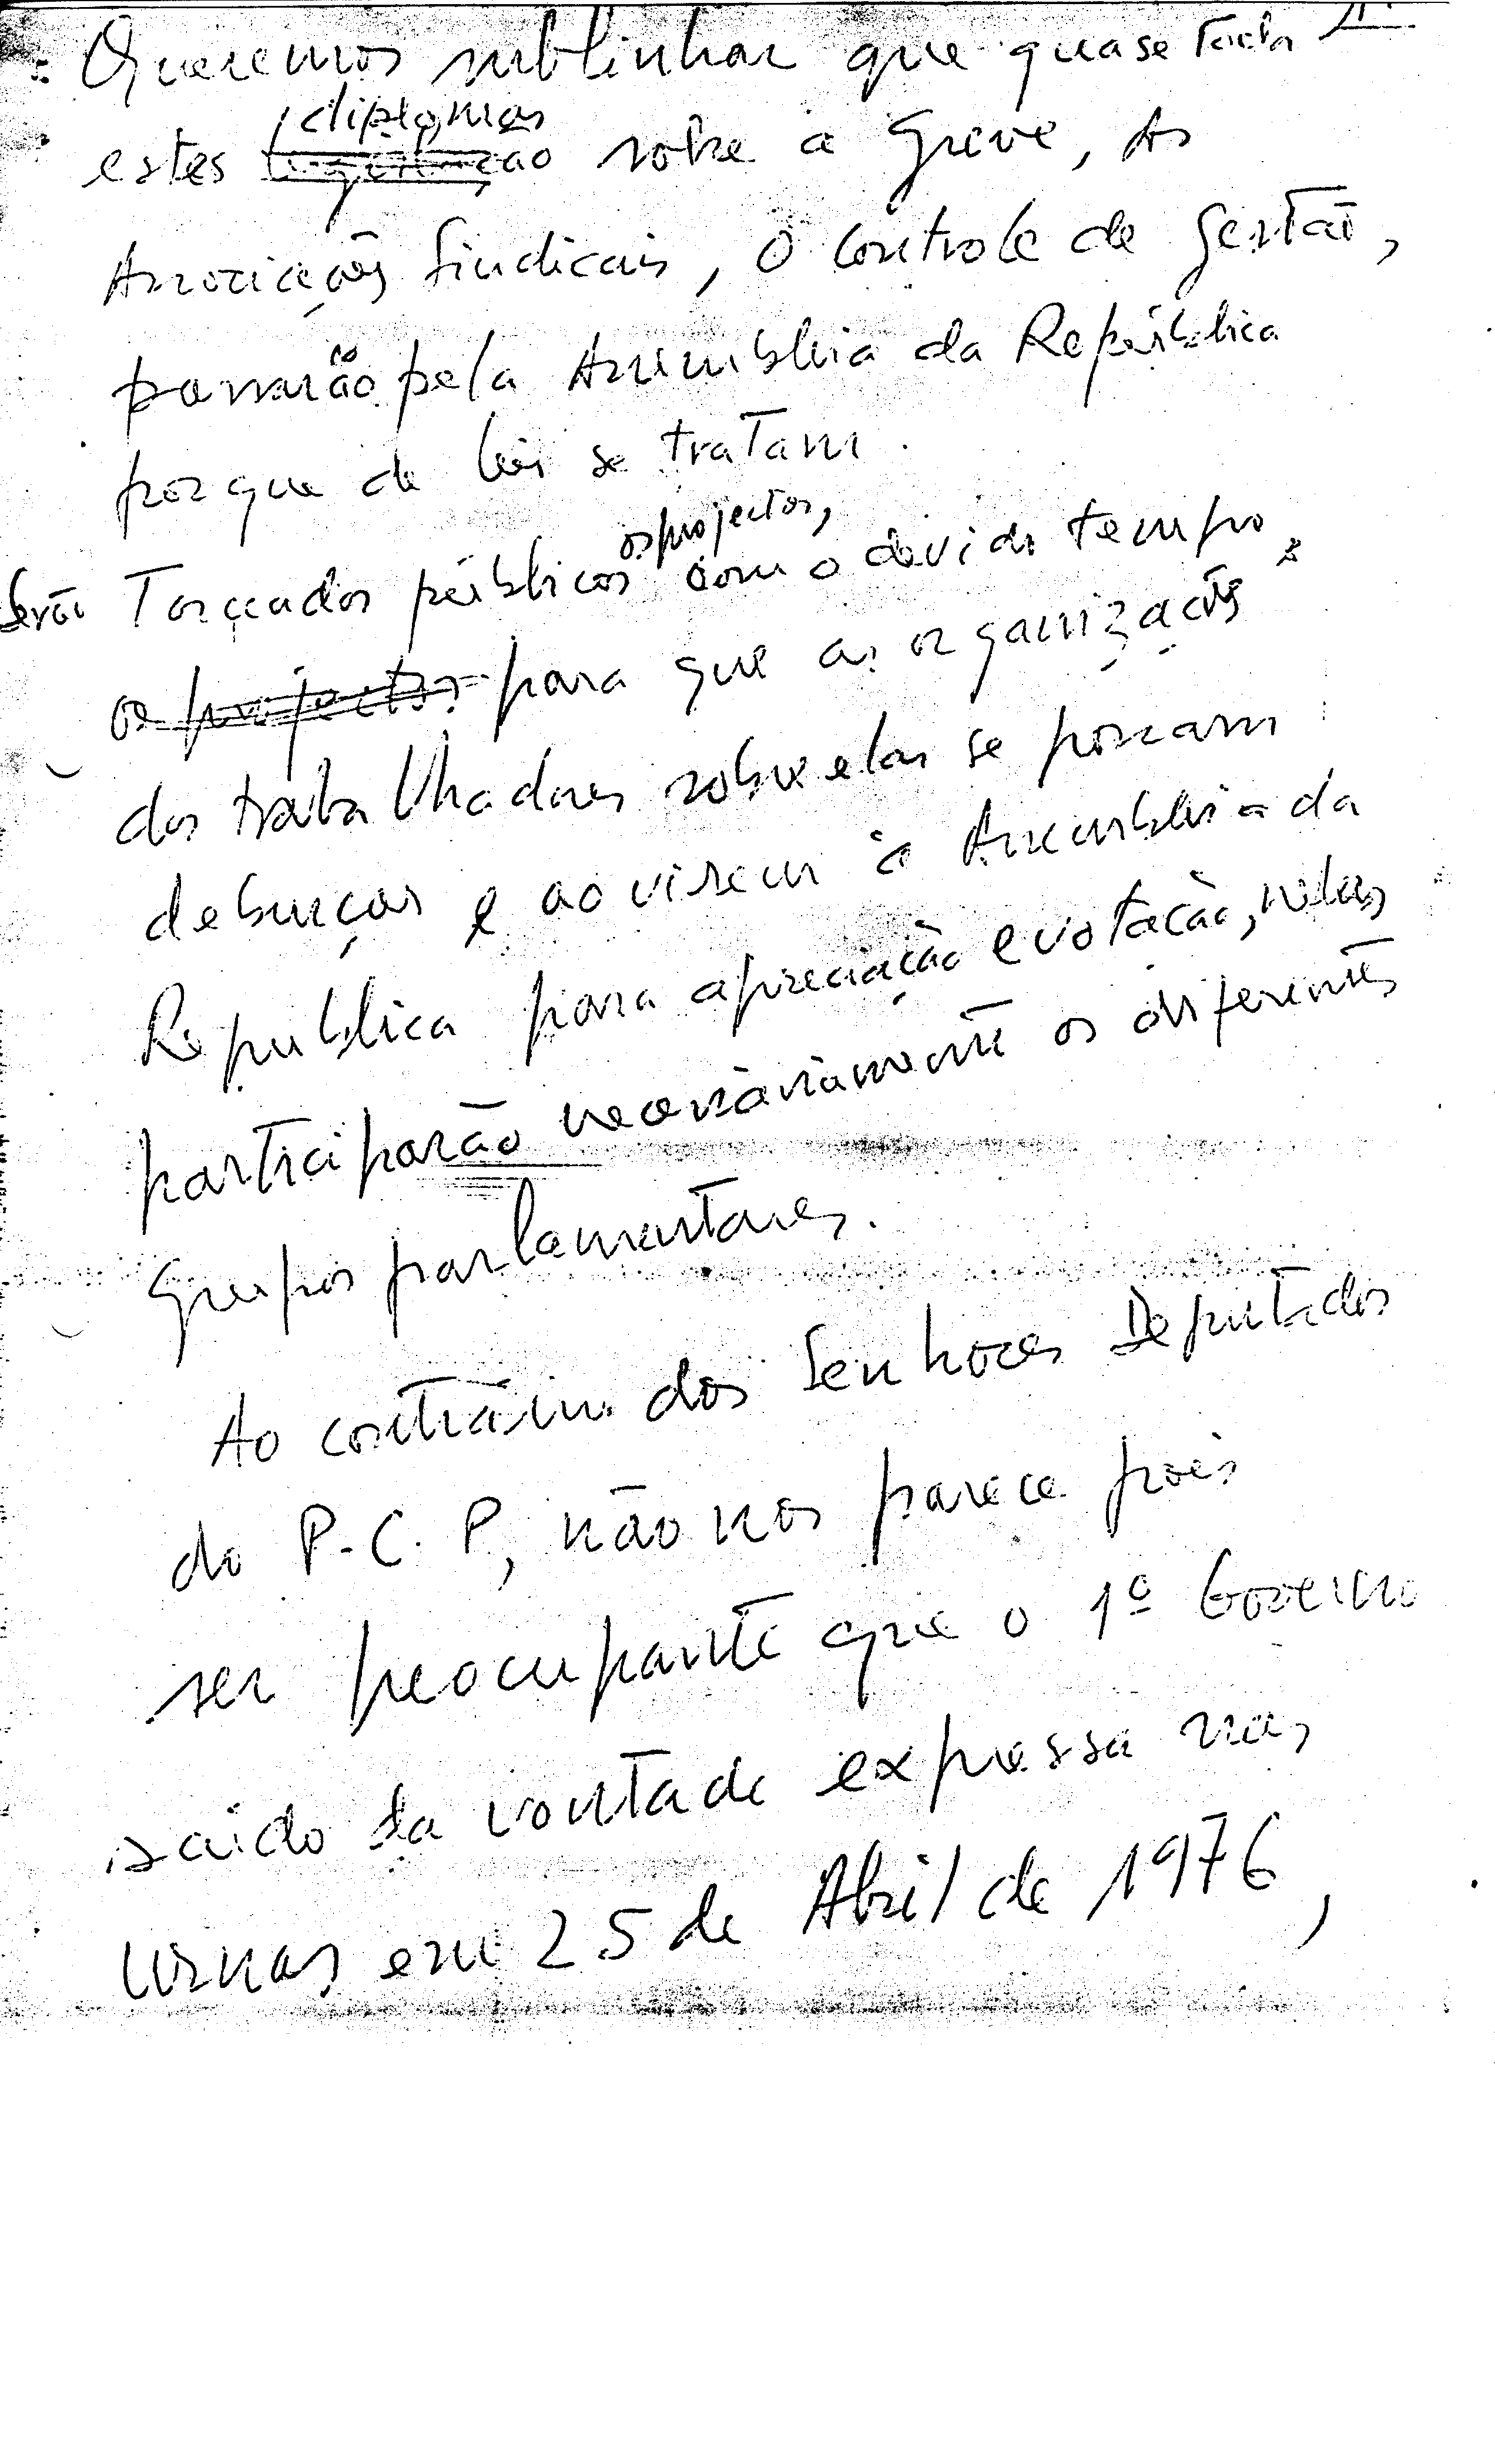 Queremos sublinhar que quase toda
diplomas
estes legislação sobre a Greve, As
Associações Sindicais, O Controle de Gestão,
passarão pela Assembleia da República
porque de leis se tratam.
os projectos,
Serão Tornados públicos com o devido tempo
os projectos para que as organizações
dos trabalhadores sobre elas se possam
debruçar e ao virem à Assembleia da
Republica para apreciação e votação, nelas
participarão necessàriamente os diferentes
Grupos parlamentares.
Ao contrário dos Senhores Deputados
do P.C.P, não nos parece pois
ser preocupante que o 1º Governo
saido da vontade expressa nas
Urnas em 25 de Abril de 1976,